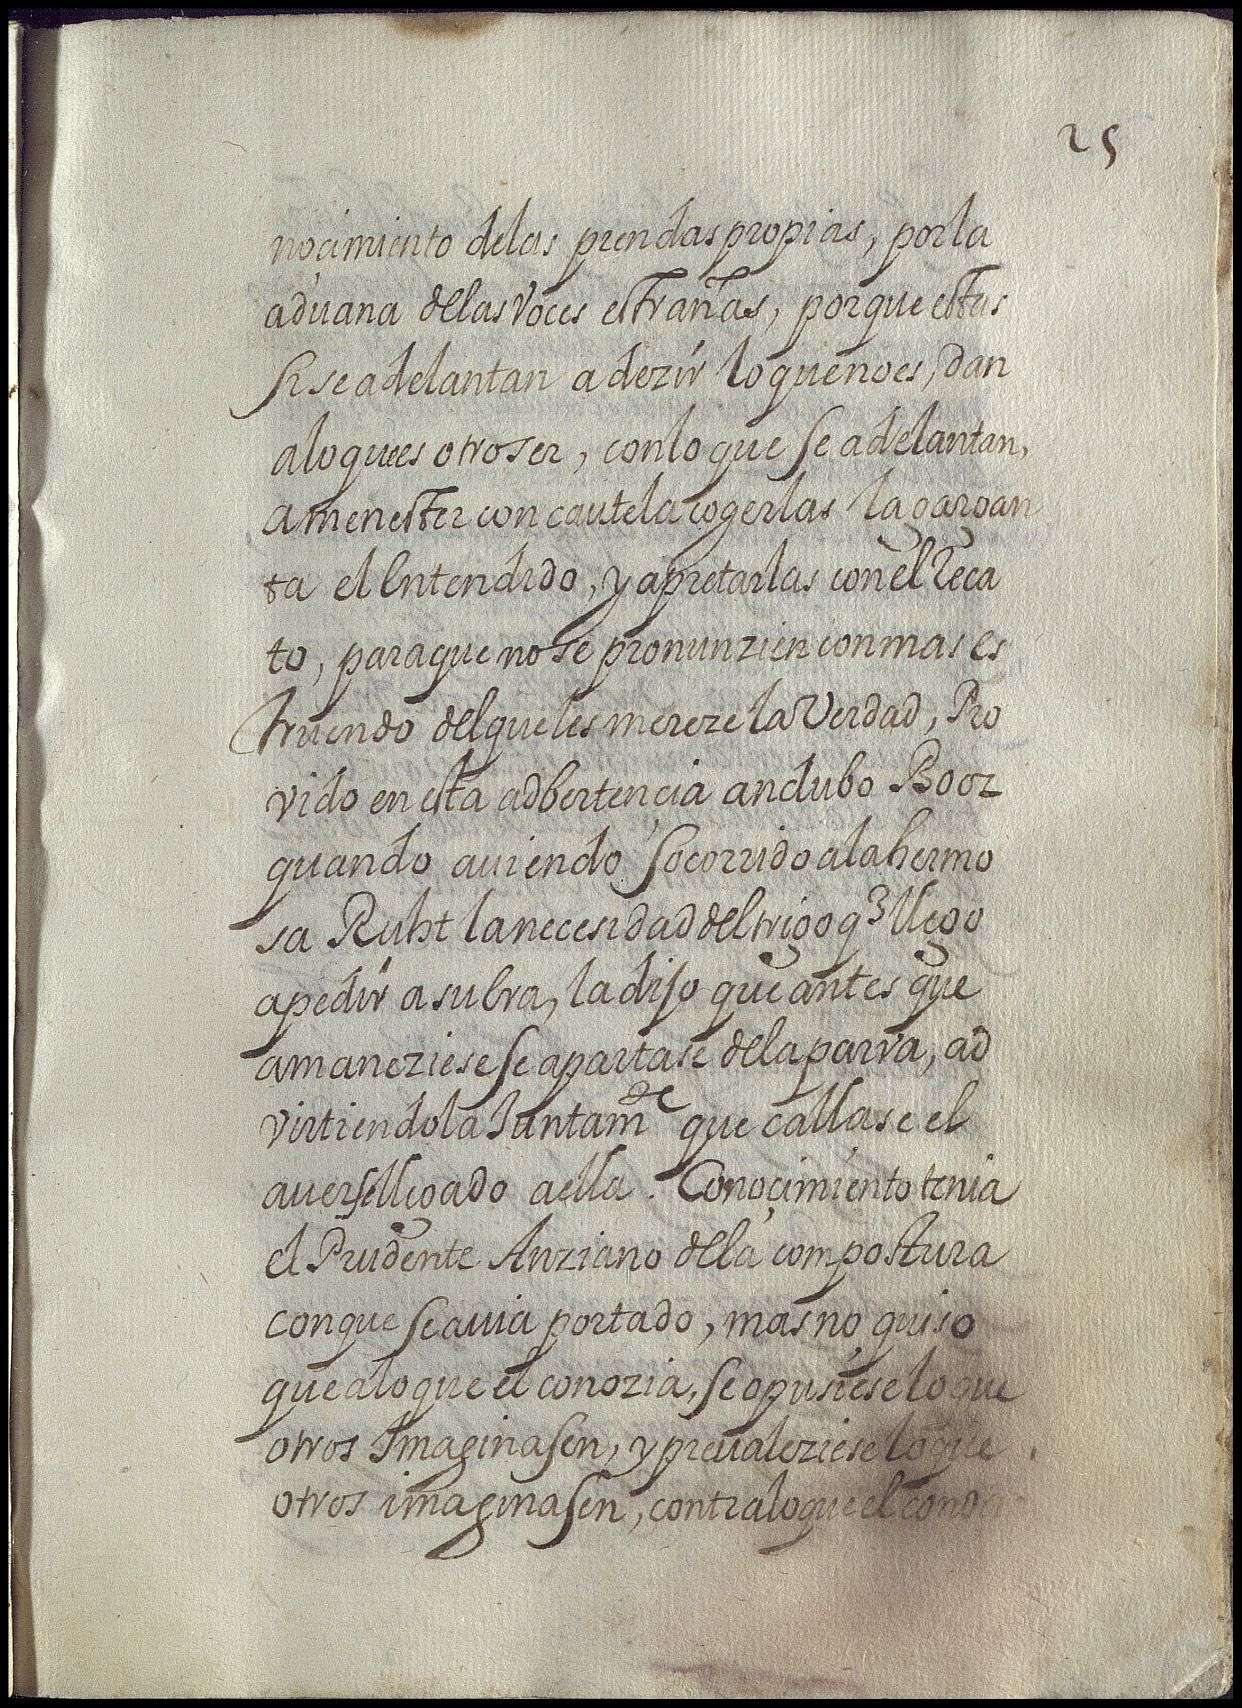 25
nocimiento delas prendas propias, por la
aduana de las voces estrañas, porque estas
si se adelantan a dezir lo que no es, dan
alo que es otro ser, con lo que se adelantan,
a menester con cautela cogerlas la gargan
ta el Entendido, y apretarlas con el Reca
to, para que no se pronunzien con mas es
truendo del que les mereze la Verdad, Pro
vido en esta adbertencia andubo Booz
quando auiendo socorrido ala hermo
sa Ruht la necesidad del trigo q llego
a pedir a su bra, la dijo que antes que
amaneziese se apartase de la parva, ad
virtiendola Juntamte que callase el
auerse llegado a ella. Conocimiento tenia
el Prudente Anziano de la compostura
con que se auia portado, mas no quiso
que alo que el conozia, se opusiese lo que
otros Imaginasen, y preualeziese lo que
otros imaginasen, contra lo que el conozi